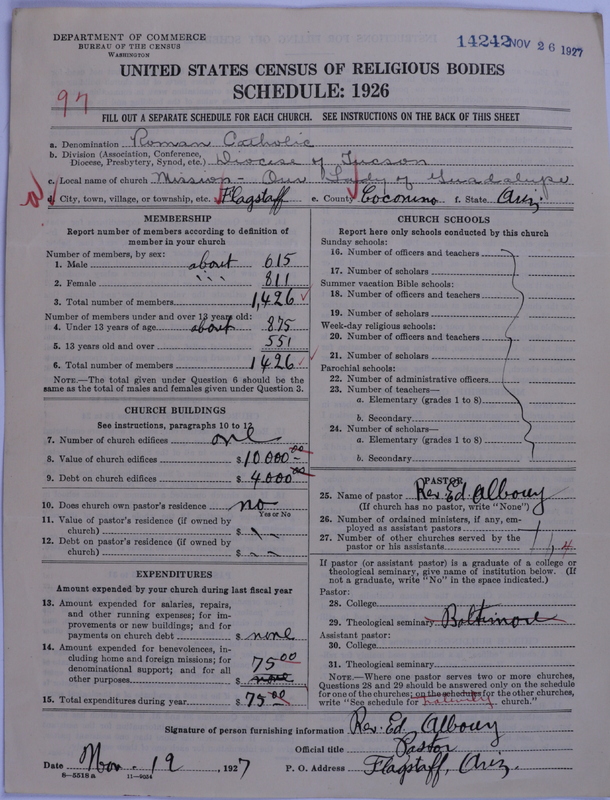 DEPARTMENT OF COMMERCE
BUREAU OF THE CENSUS
WASHINGTON
14242 NOV 26 1927
UNITED STATES CENSUS OF RELIGIOUS BODIES
SCHEDULE: 1926
97
FILL OUT A SEPARATE SCHEDULE FOR EACH CHURCH. SEE INSTRUCTIONS ON THE BACK OF THIS SHEET
a. Denomination Roman Catholic
b. Division (Association, Conference, Diocese, Presbytery, Synod, etc.) Diocese of Tucson
c. Local name of church Mission - Our Lady of Guadalupe
d. City, town, village, or township, etc. Flagstaff e. County Coconino f. State Ariz.
MEMBERSHIP
Report number of members according to definition of
member in your church
Number of members, by sex:
1. Male about 615
2. Female " " " 811
3. Total number of members 1,426
Number of members under and over 13 year old:
4. Under 13 years of age about 875
5. 13 years old and over 551
6. Total number of members 1426
NOTE.—The total given under Question 6 should be the
same as the total of males and females given under Question 3.
CHURCH BUILDINGS
See instructions, paragraphs 10 to 12
7. Number of church edifices one
8. Value of church edifices $ 10000.00
9. Debt on church edifices $ 4000.00
10. Does church own pastor's residence no
Yes or No
11. Value of pastor's residence (if owned by
church) $
12. Debt on pastor's residence (if owned by
church) $
EXPENDITURES
Amount expended by your church during last fiscal year
13. Amount expended for salaries, repairs,
and other running expenses; for im-
provements or new buildings; and for
payments on church debt $ none
14. Amount expended for benevolences, in-
cluding home and foreign missions; for
denominational support; and for all
other purposes $ 75.00 none
15. Total expenditures during year $ 75.00
CHURCH SCHOOLS
Report here only schools conducted by this church
Sunday schools:
16. Number of officers and teachers
17. Number of scholars
Summer vacation Bible schools:
18. Number of officers and teachers
19. Number of scholars
Week-day religious schools:
20. Number of officers and teachers
21. Number of scholars
Parochial schools:
22. Number of administrative officers
23. Number of teachers—
a. Elementary (grades 1 to 8)
b. Secondary
24. Number of scholars—
a. Elementary (grades 1 to 8)
b. Secondary
PASTOR
25. Name of pastor Rev. Ed. Albouy
(If church has no pastor, write "None")
26. Number of ordained ministers, if any, em-
ployed as assistant pastors
27. Number of other churches served by the
pastor or his assistants 4
If pastor (or assistant pastor) is a graduate of a college or
theological seminary, give name of institution below. (If
not a graduate, write "No" in the space indicated.)
Pastor:
28. College
29. Theological seminary Baltimore
Assistant pastor:
30. College
31. Theological seminary
NOTE.—Where one pastor serves two or more churches,
Questions 28 and 29 should be answered only on the schedule
for one of the churches; on the schedules for the other churches,
write "See schedule for Nativity church."
Signature of person furnishing information Rev. Ed Albouy
Official title Pastor
Date Nov. 19, 1927 P. O. Address Flagstaff, Ariz.
8—5518 a 11—9024